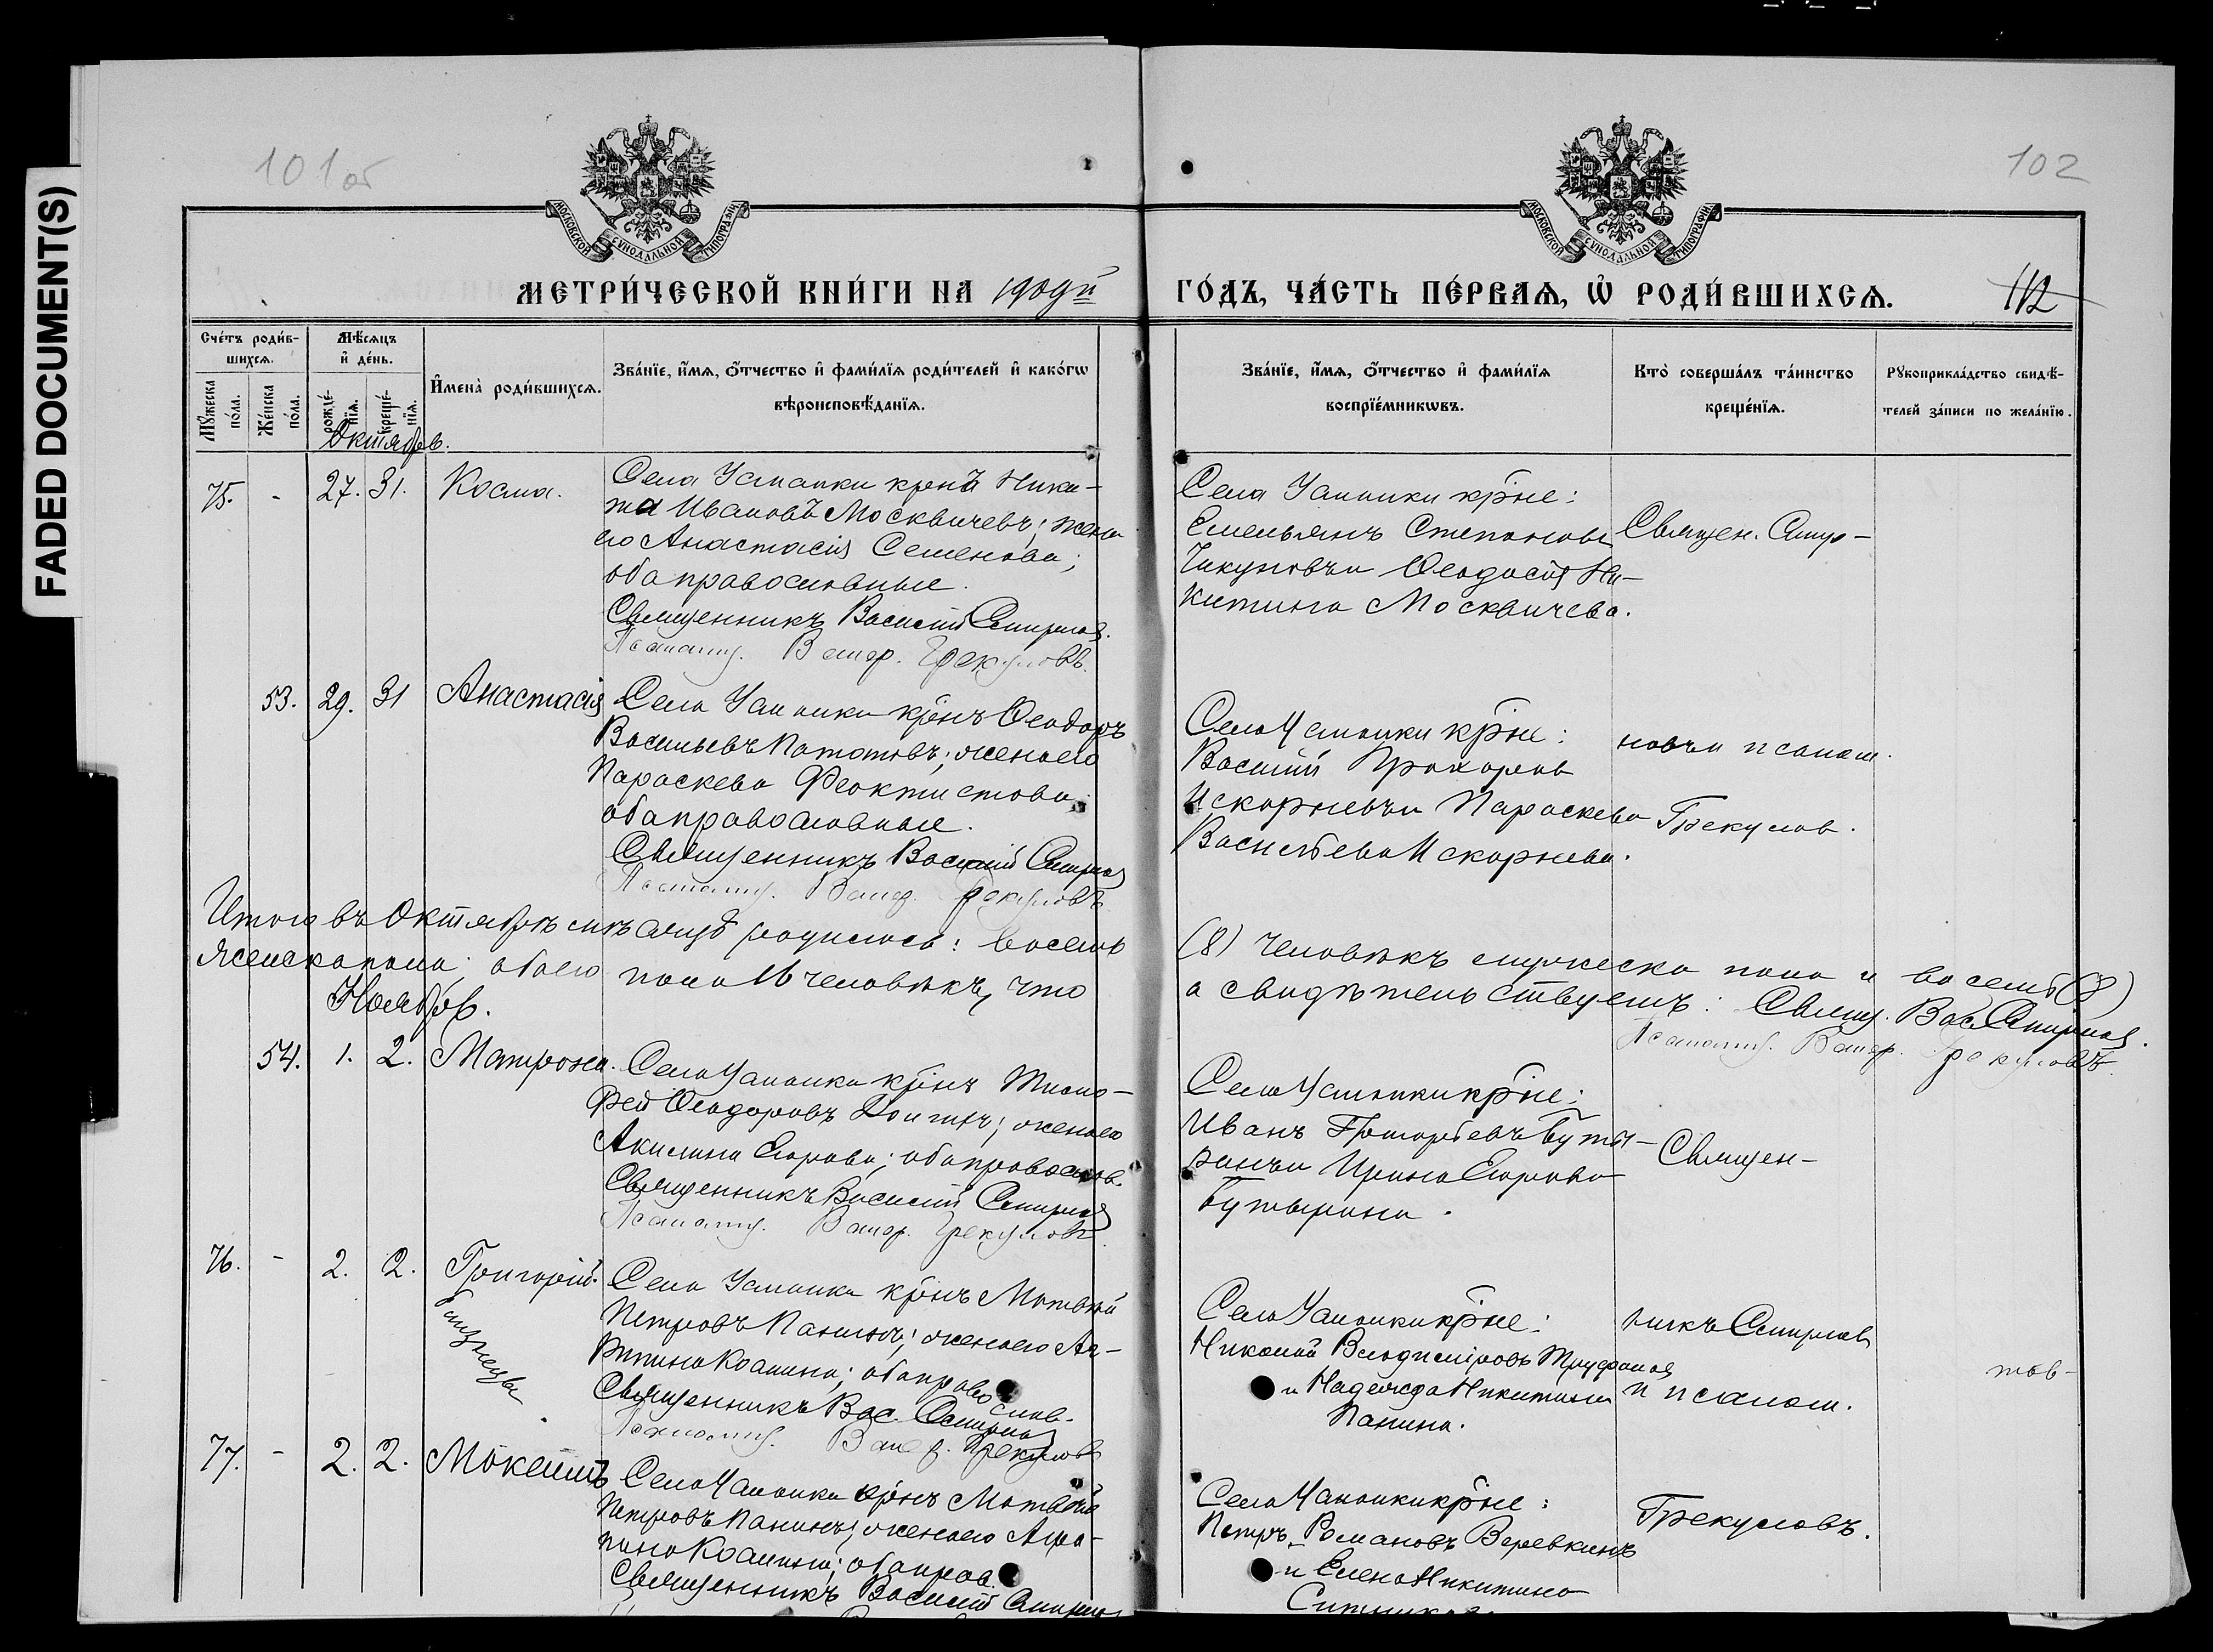 FADED DOCUMENT(S)
101об
102
МОСКОВСКОЙ СѴНОДАЛЬНОЙ ТИПОГРАФІИ
МОСКОВСКОЙ СѴНОДАЛЬНОЙ ТИПОГРАФІИ
МЕТРИ́ЧЕСКОЙ КНИ́ГИ НА 1909й
ГО́ДЪ, ЧА́СТЬ ПЕ́РВАѦ, Ѡ҆ РОДИ́ВШИХСѦ.
112
Сче́тъ роди́в-
шихсѧ.
Мꙋ́жеска
по́ла.
Же́нска
по́ла.
Мѣ́сѧцъ
и҆ де́нь.
рожде́-
нїѧ.
креще́-
нїѧ.
И҆мена̀ роди́вшихсѧ.
Зва́нїе, и҆́мѧ, ѻ҆́тчество и҆ фами́лїѧ роди́телей и҆ како́гѡ
вѣроисповѣ́данїѧ.
Зва́нїе, и҆́мѧ, ѻ҆́тчество и҆ фами́лїѧ
воспрїе́мникѡвъ.
Кто̀ соверша́лъ та́инство
креще́нїѧ.
Рꙋкоприкла́дство свидѣ́-
телей за́писи по жела́нїю.
Октябрь.
75. - 27. 31. Косма.
Села Усманки крнъ Ники-
та Ивановъ Москвичевъ; жена
его Анастасія Семенова;
оба православные.
Священникъ Василій Смирновъ.
Псаломщ. Грекуловъ.
Села Усманки кр̃не:
Емельянъ Степановъ
Чикуновъ и Ѳеодосія Ни-
китина Москвичева.
Священ. Смир-
53. 29. 31 Анастасія
Села Усманки крнъ Ѳеодоръ
Васильевъ Пототовъ; жена его
Параскева Феоктистова;
оба православные.
Священникъ Василій Смирновъ
Псаломщ. Грекуловъ
Села Усманки кр̃не:
Василій Прохоровъ
Искорневъ и Параскева
Васильева Искорнева.
новъ и псалом.
Грекулов.
Итого въ Октябрѣ мѣсяцѣ родилось: восемь
(8) человѣкъ мужеска пола и восемь (8)
женска пола; обоего пола 16 человѣкъ, что
а свидѣтельствуетъ: Свящ. Вас. Смирновъ.
Псаломщ. Грекуловъ.
Ноябрь.
54. 1. 2. Матрона.
Села Усманки крнъ Тимо-
фей Ѳеодоровъ Долгихъ; жена его
Акилина Егорова; оба православ.
Священникъ Василій Смирновъ
Псаломщ. Грекуловъ
Села Усманки кр̃не:
Иванъ Григорьевъ Буты-
ринъ и Ирина Егорова
Бутырина.
Священ-
76. - 2. 2. Григорій.
близнецы
Села Усманки крнъ Матвѣй
Петровъ Панинъ; жена его Аг-
рипина Космина; оба правос-
лав.
Священникъ Вас. Смирновъ
Псаломщ. Грекуловъ
Села Усманки кр̃не:
Николай Владиміровъ Труфановъ
и Надежда Никитина
Панина.
никъ Смирновъ
и псалом.
77. - 2. 2. Мокеій
Села Усманки крнъ Матвѣй
Петровъ Панинъ; жена его Агри-
пина Космина; оба прав.
Священникъ Василій Смирновъ
Села Усманки кр̃не:
Петръ Романовъ Веревкинъ
и Елена Никитина
Грекуловъ.